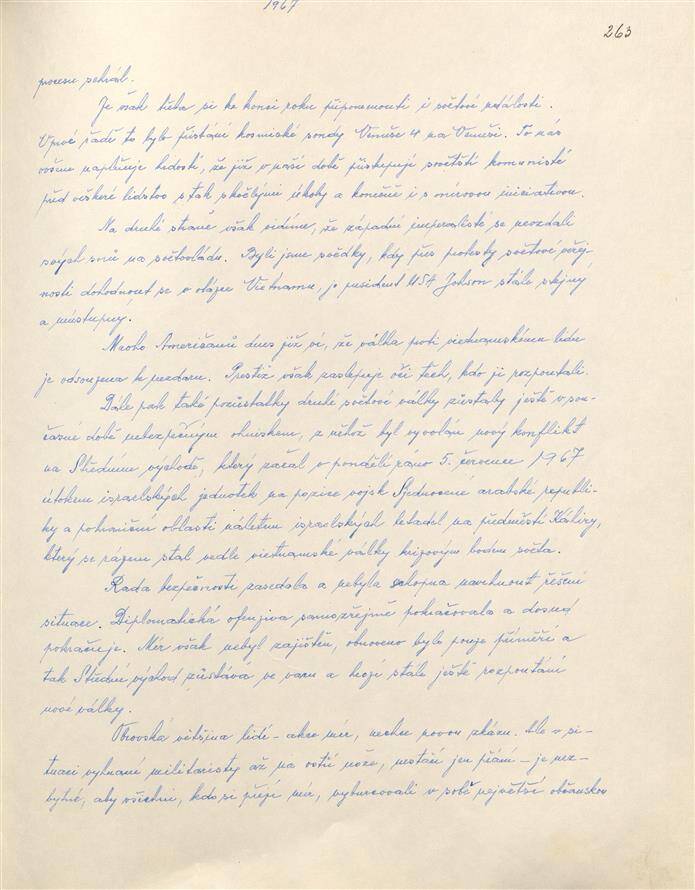 1967
263
procesu sehrál.
Je však třeba si ke konci roku připomenouti i světové události.
V prvé řadě to bylo přistání kosmické sondy Venuše 4 na Venuši. To nás
ovšem naplňuje hrdostí, že již v naší době předstupují sovětští komunisté
před veškeré lidstvo s tak skvělými úkoly a konečně i s mírovou iniciativou.
Na druhé straně však vidíme, že západní imperalisté se nevzdali
svých snů na světovládu. Byli jsme svědky, kdy přes protesty světové veřej-
nosti dohodnout se v otázce Vietnamu, je president USA Johson stále stejný
a neústupný.
Mnoho Američanů dnes již ví, že válka proti viednamskému lidu
je odsouzena k nezdaru. Prestiž však zaslepuje oči těch, kdo ji rozpoutali.
Dále pak také pozůstatky druhé světové války zůstaly ještě v sou-
časné době nebezpečným ohniskem, z něhož byl vyvolán nový konflikt
na Středním východě, který začal v pondělí ráno 5. července 1967
útokem israelských jednotek na pozice vojsk Sjednocené arabské republi-
ky a pohraniční oblasti náletem israelských letadel na předměstí Káhiry,
který se rázem stal vedle vietnamské války krizovým bodem světa.
Rada bezpečnosti zasedala a nebyla schopna navrhnout řešení
situace. Diplomatická ofenziva samozřejmě pokračovala a dosud
pokračuje. Mír však nebyl zajištěn, obnoveno bylo pouze příměří a
tak Střední východ zůstává ve varu a hrozí stále ještě rozpoutání
nové války.
Obrovská většina lidí - chce mír, nechce novou zkázu. Ale v si-
tuaci vyhnané militaristy až na ostří nože, nestačí jen přání - je nez-
bytné, aby všichni, kdo si přejí mír, vyburcovali v sobě největší občanskou